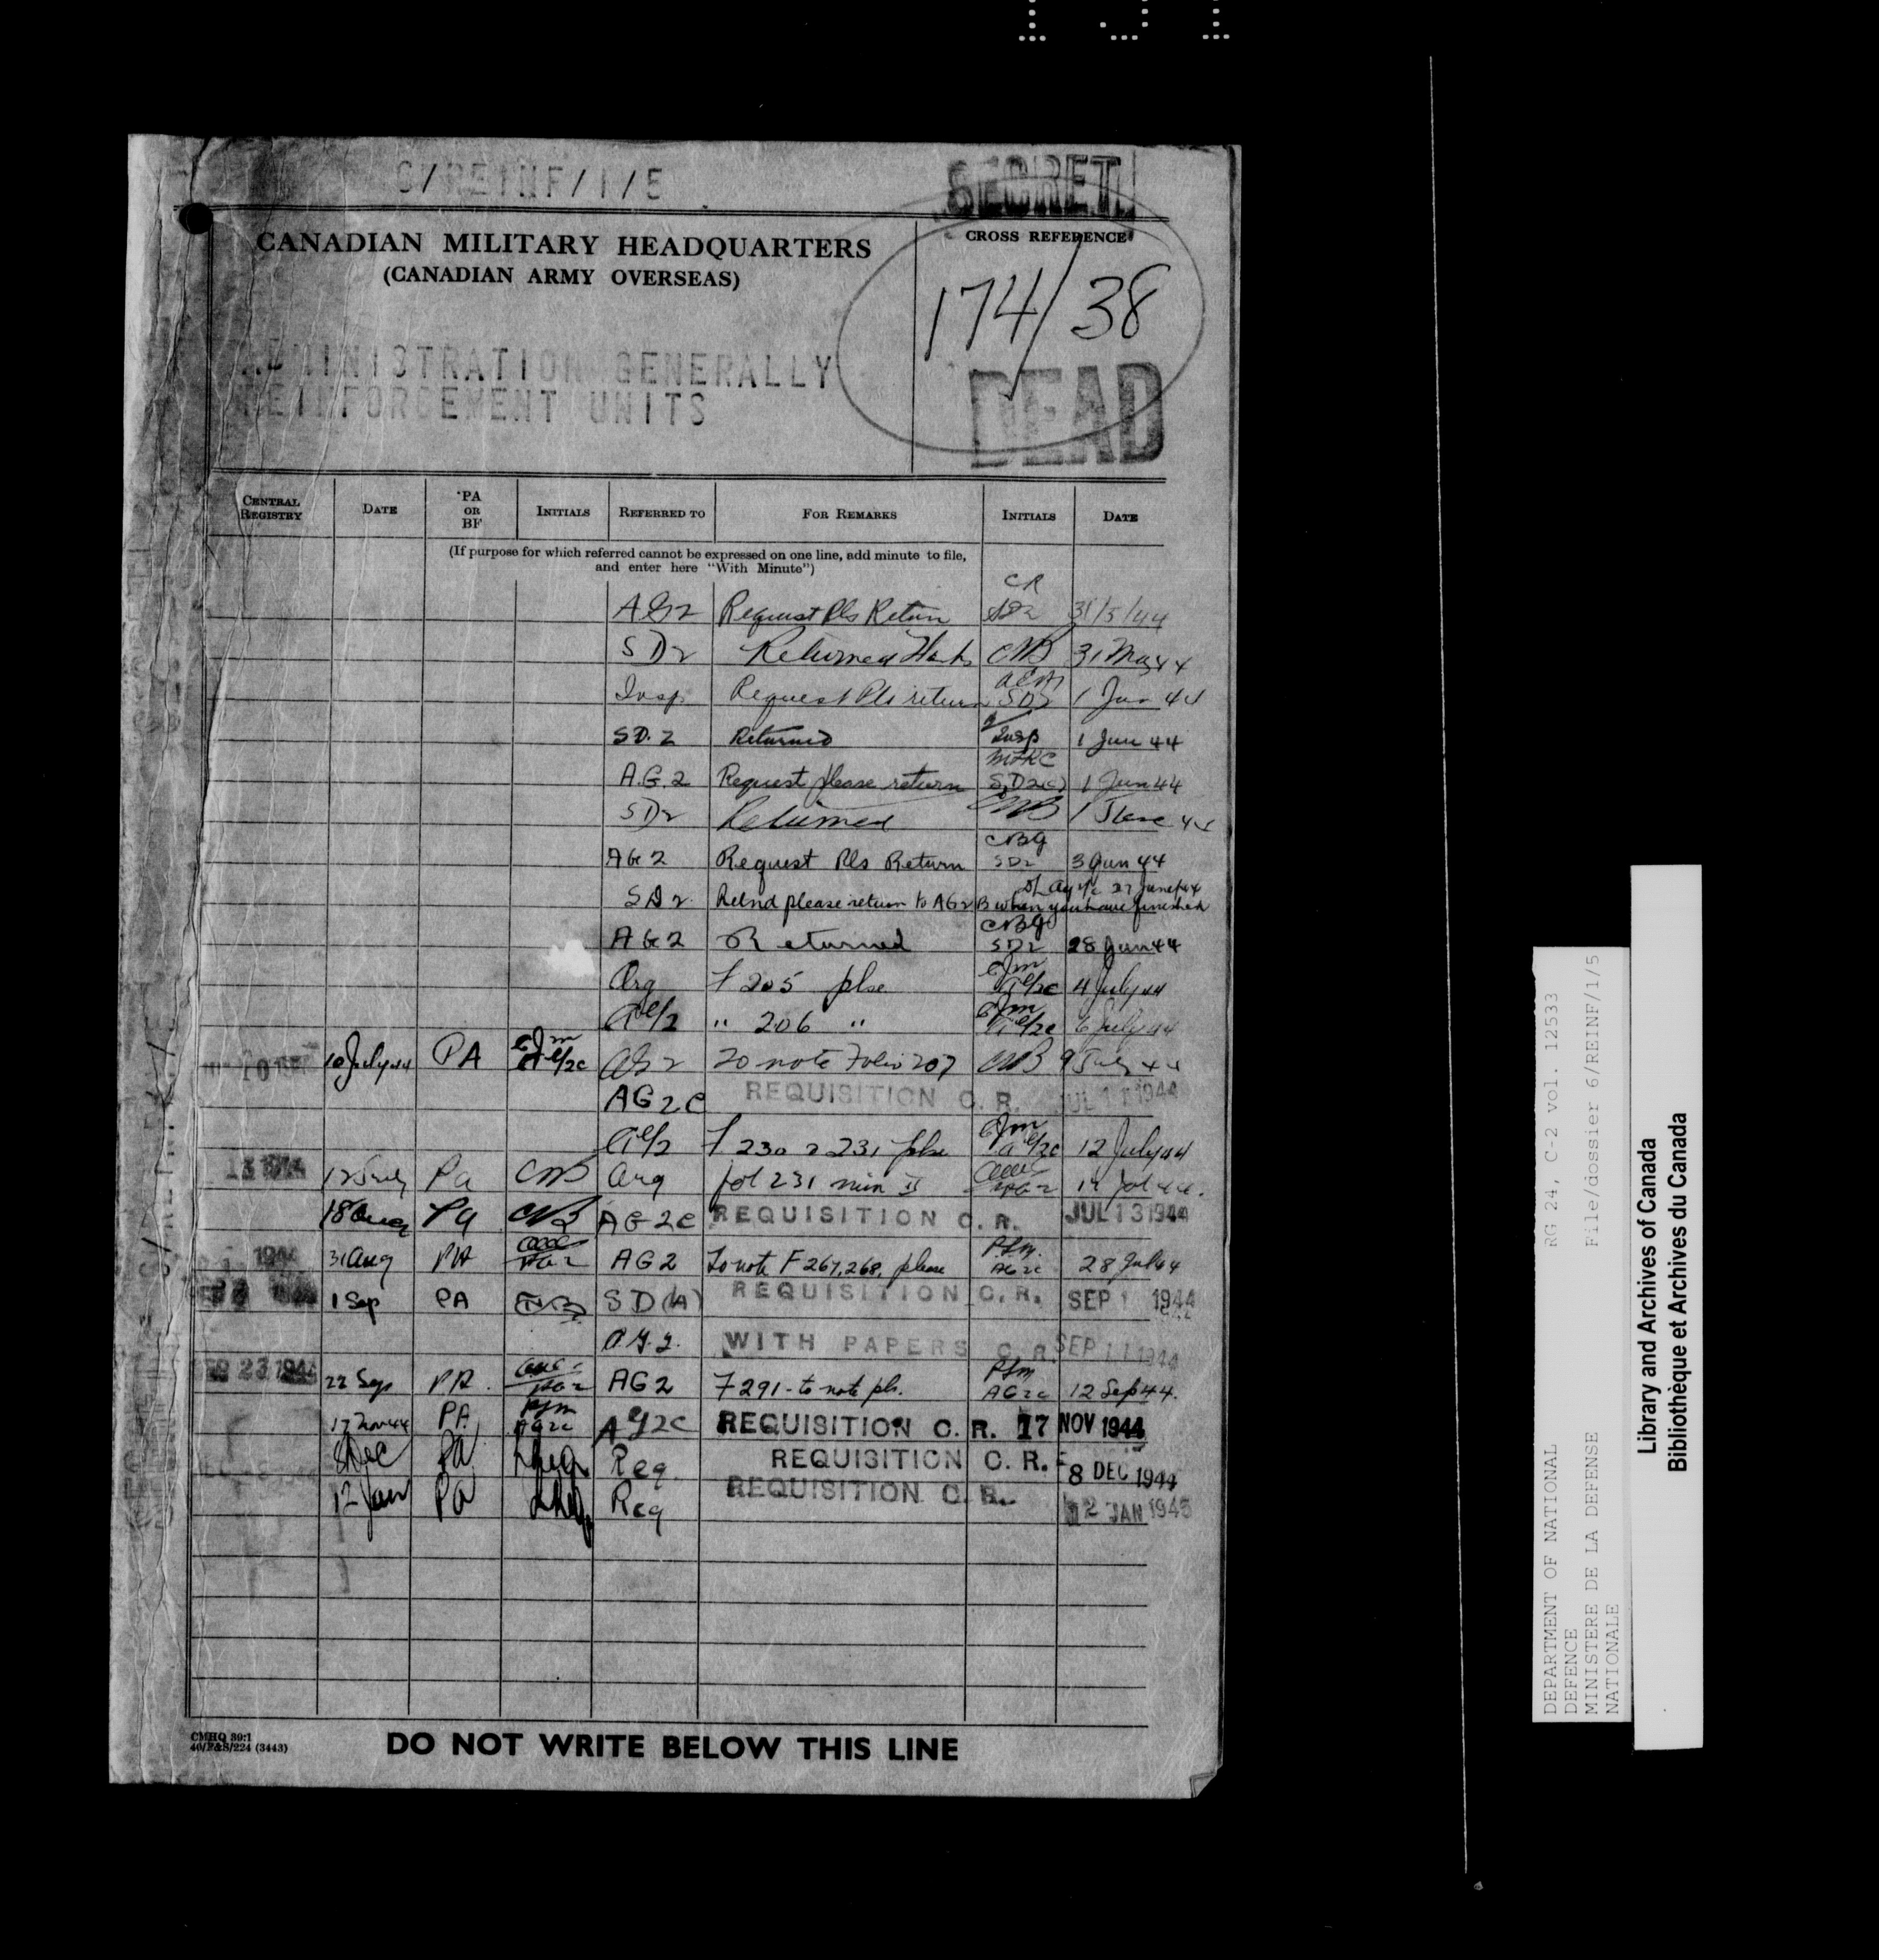 /REINF/1/E
SECRET
CANADIAN MILITARY HEADQUARTERS
(CANADIAN ARMY OVERSEAS)
CROSS REFERENCE
174/38
ADMINISTRATION GENERALLY
REINFORCEMENT UNITS
DEAD
CENTRAL REGISTRY DATE PA OR BF INITIALS REFERRED TO FOR REMARKS INITIALS DATE
(If purpose for which referred cannot be expressed on one line, add minute to file,
and enter here "With Minute")
CR
AG2 Request Pls Return SD2 31/5/44
SD2 Returned CMB 31 May 44
Insp. Request Pls return SD2 1 Jun 44
SD.2 Returned Insp 1 Jun 44
A.G.2 Request please return SD2(c) 1 Jun 44
SD2 Returned CMB 1 June 44
CBG
AG2 Request Pls Return SD2 3 Jun 44
27 June 44
SD2 Retnd please return to AG2B when you have finished
CBG
AG2 Returned SD2 28 Jun 44
Org f 205 plse 4 July 44
AG/2 " 206 " 6 July 44
10 July 44 PA AG2 To note Folio 207 CMB 9 July 44
AG2C REQUISITION C. R. JUL 11 1944
AG/2 f 230 & 231 plse 12 July 44
13 1944 12 July Pa CMB Org fol 231 min II
18 Aug Pa CMB AG2C REQUISITION C. R. JUL 13 1944
1944 31 Aug PA AG2 To note F 267, 268, please AG2C 28 Jul 44
1 Sep PA SD(A) REQUISITION C. R. SEP 1 1944
A.G.2. WITH PAPERS C. R. SEP 11 1944
23 1944 22 Sep PA AG2 F 291 - to note pls. AG2C 12 Sep 44.
17 Nov 44 PA AG2C AG2C REQUISITION C. R. 17 NOV 1944
8 Dec PA Reg. REQUISITION C. R. 8 DEC 1944
12 Jan PA Reg REQUISITION C. R. 12 JAN 1945
CMHQ 39:1
40/P&S/224 (3443)
DO NOT WRITE BELOW THIS LINE
DEPARTMENT OF NATIONAL RG 24, C-2 vol. 12533
DEFENCE
MINISTERE DE LA DEFENSE File/dossier 6/REINF/1/5
NATIONALE
Library and Archives of Canada
Bibliothèque et Archives du Canada